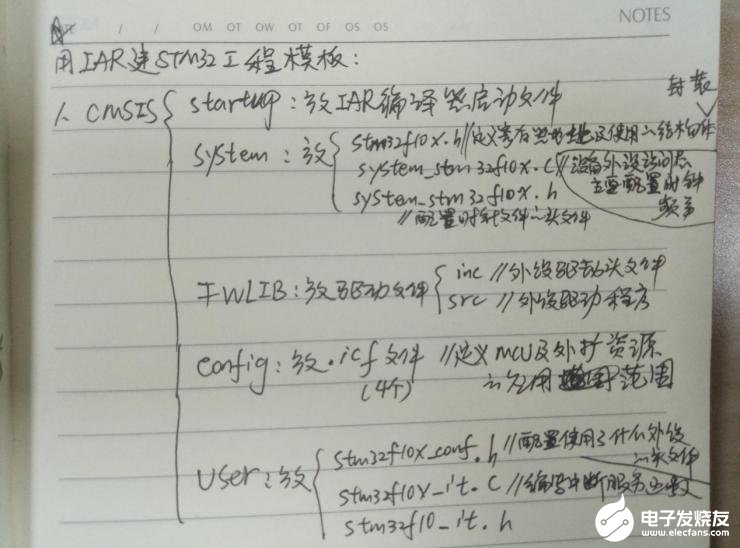 NOTES
DATE / / OM OT OW OT OF OS OS
用IAR建STM32工程模板:
1、CMSIS
startup:放IAR编译器启动文件
封装
system:放
stm32f10x.h//定义寄存器地址及使用的结构体
system_stm32f10x.c//设备外设访问层
主要配置时钟
频率
system_stm32f10x.h
//配置时钟文件的头文件
FWLIB:放驱动文件
inc //外设驱动头文件
src //外设驱动程序
config:放.icf文件 //定义MCU及外扩资源
(4个) 的 范围
user:放
stm32f10x_conf.h//配置使用了什么外设
的头文件
stm32f10x_it.c//编写中断服务函数
stm32f10_it.h
电子发烧友
www.elecfans.com